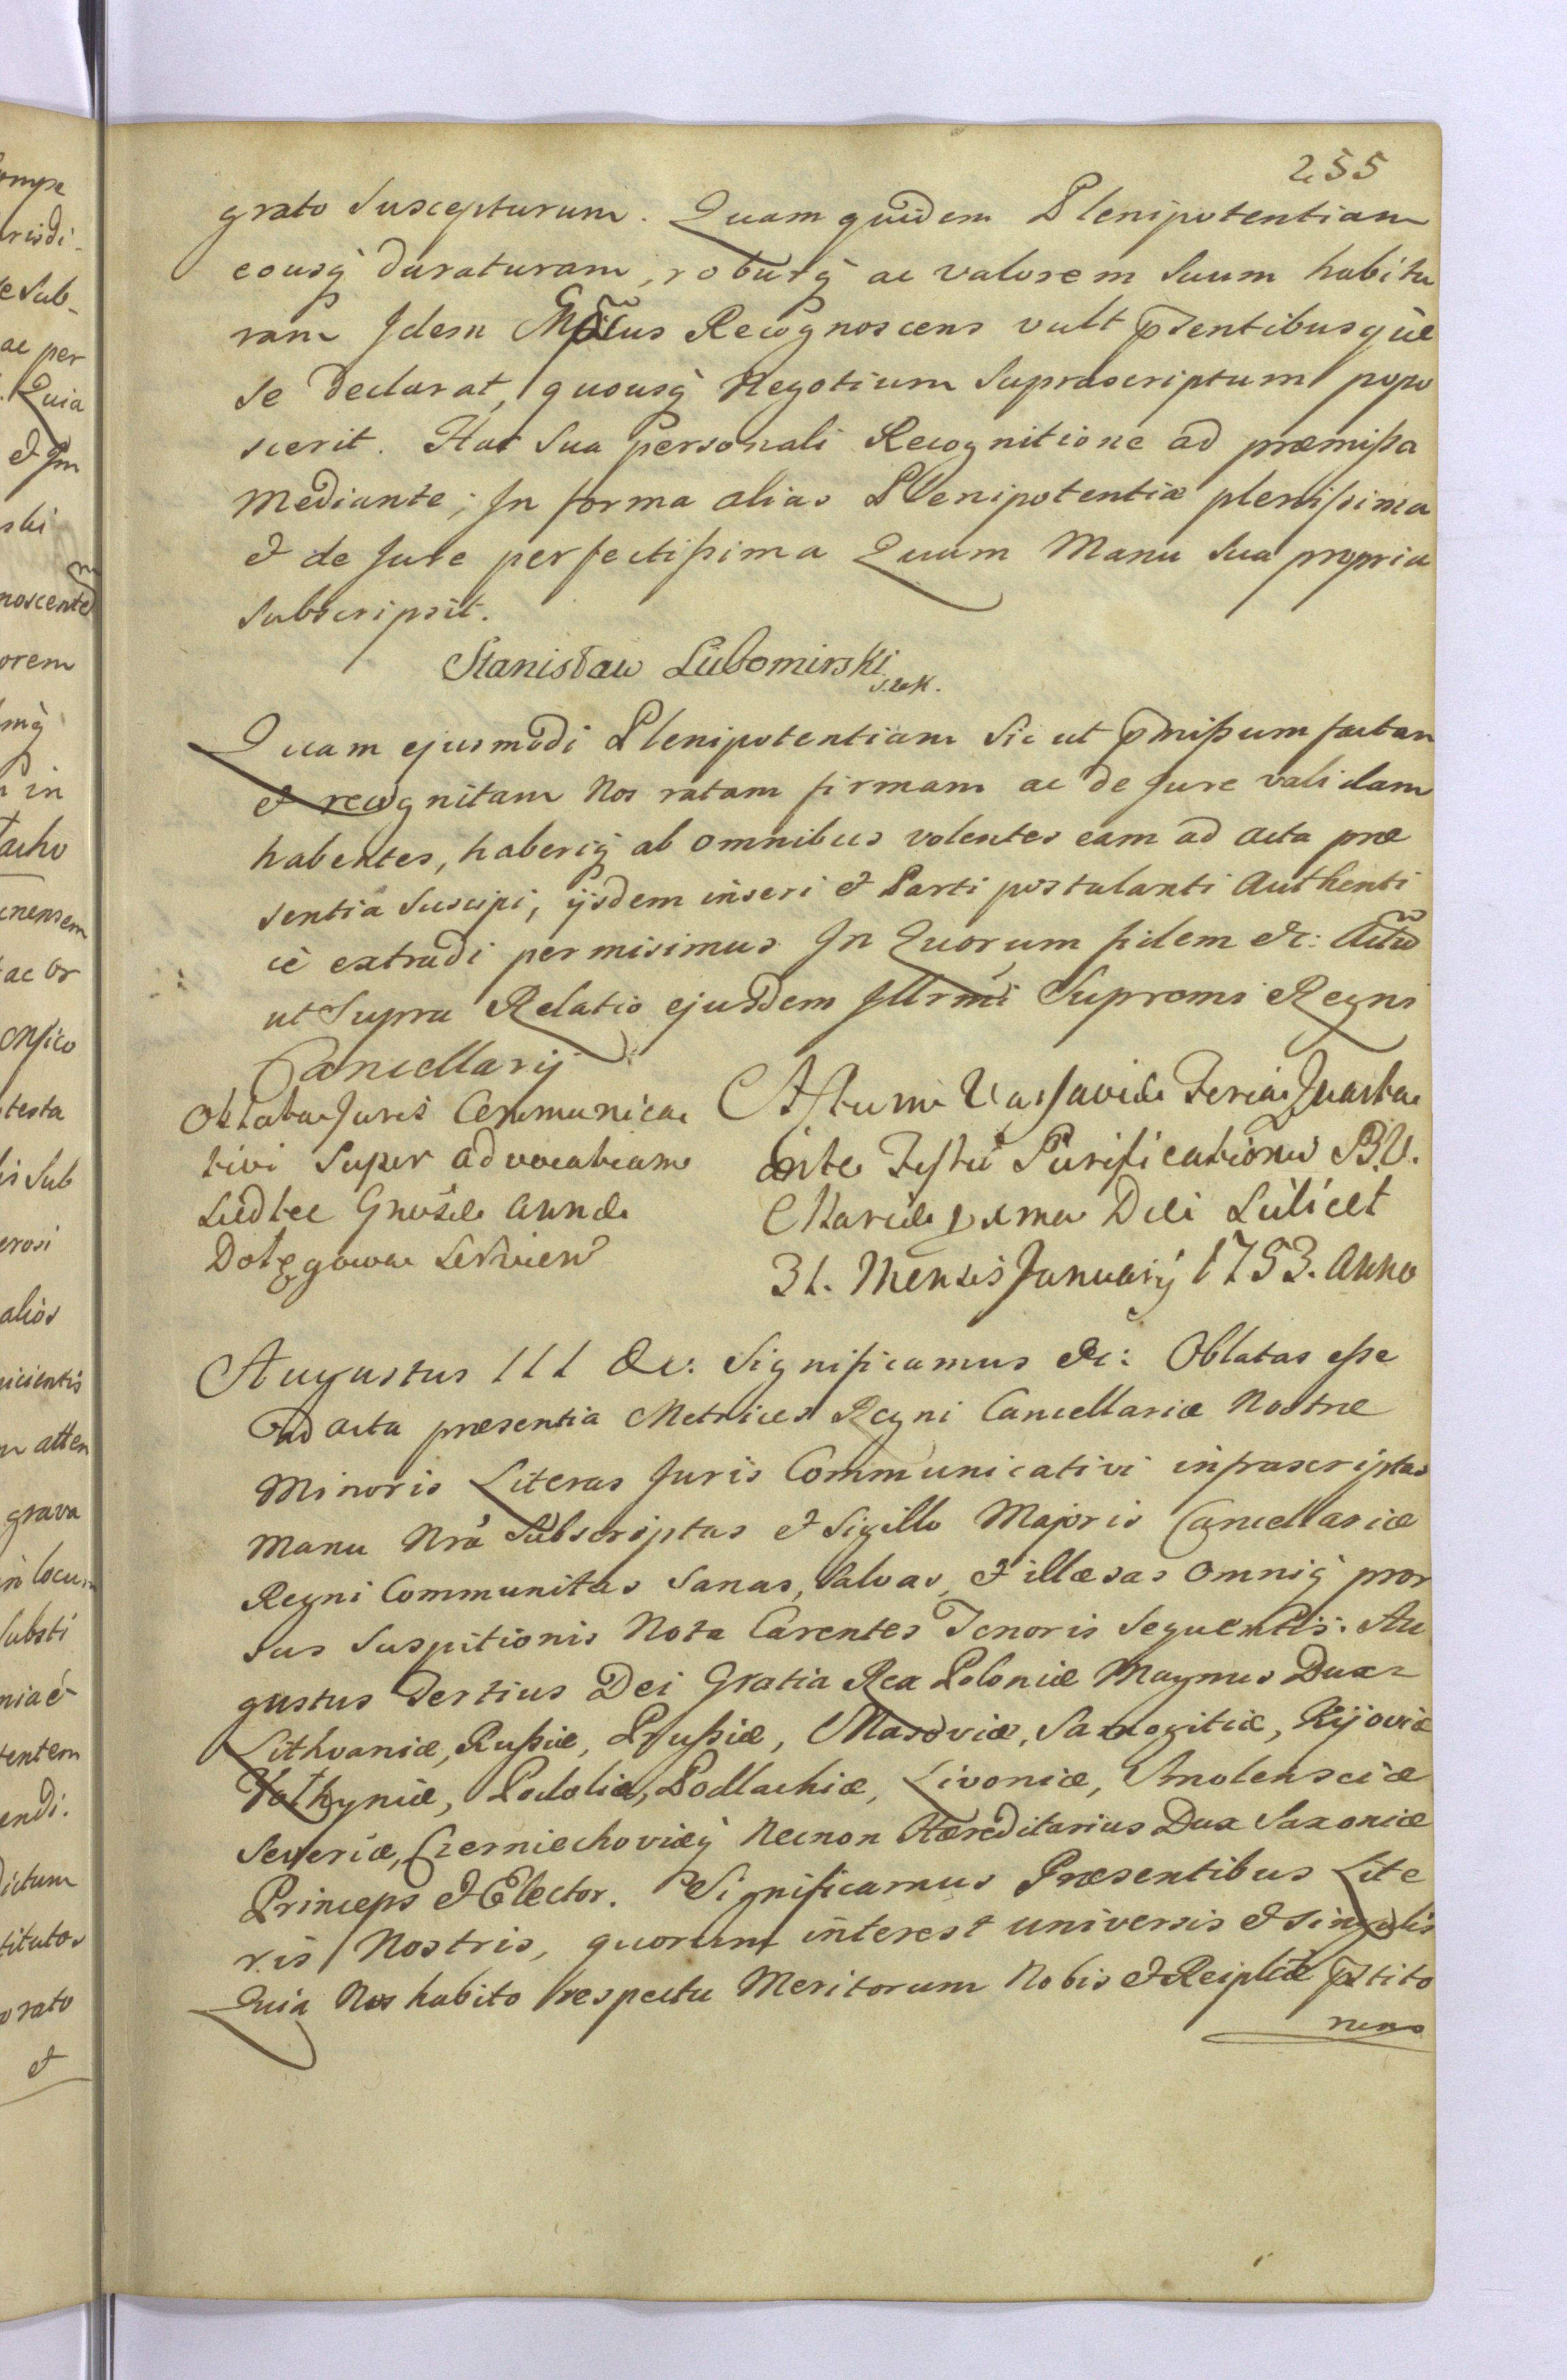 255
grato Suscepturum. Quam quidem Plenipotentiam
eousq̀ duraturam, roburq̀ ac valorem Suum habitu
ram Idem Mgficus Recognoscens vult p̃sentibusque
se declarat, quousq̀ Negotium Suprascriptum popo
scerit. Hac Sua personali Recognitione ad præmißa
Mediante; In forma alias Plenipotentiæ plenißima
et de Jure perfectißima Quam Manu Sua propria
Subscripsit.
Stanisław Lubomirski
Quam ejusmodi Plenipotentiam Sic ut p̃mißum factam
et recognitam Nos ratam firmam ac de Jure validam
habentes, haberiq̀ ab omnibus volentes eam ad acta præ
sentia Suscipi, ijsdem inseri et Parti postulanti Authenti
cè extradi permisimus In Quorum fidem etc: Actũ
ut Supra Relatio ejusdem Illrmi Supremi Regni
Cancellarij
Oblata Juris Communica
tivi Super advocatiam
Siedlee Gnosæ Annæ
Dołęgowa
Actum Varsaviæ Feria Quarta
ante Festũ Purificationis B.V.
Mariæ Dei Scilicet
31. Mensis Januarij 1753. Anno
Augustus III etc: Significamus etc: Oblatas eße
ad acta præsentia Metrices Regni Cancellariæ Nostræ
Minoris Literas Juris Communicativi infrascriptas
Manu Nrã Subscriptas et Sigillo Majoris Cancellariæ
Regni Communitas Sanas, Salvas, et illæsas Omniq̀ pror
sus Suspitionis Nota Carentes Tenoris Sequentis: Au
gustus Tertius Dei Gratia Rex Poloniæ Magnus Dux
Lithvaniæ, Rußiæ, Prußiæ, Masoviæ, Samogitiæ, Kijoviæ
Volhyniæ, Podoliæ, Podlachiæ, Livoniæ, Smolensciæ
Severiæ, Czerniechoviæq̀ Necnon Hæreditarius Dux Saxoniæ
Princeps et Elector. Significamus Præsentibus Lite
ris Nostris, quorum interest universis et singulis
Quia Nos habito respectu Meritorum Nobis et Reiplicæ p̃stito
rum